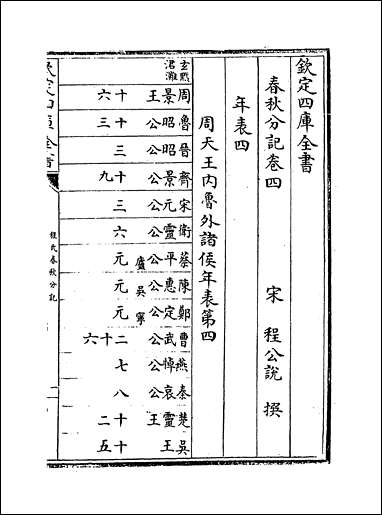 欽定四庫全書
春秋分記卷四
宋 程公說 撰
年表四
周天王內魯外諸侯年表第四
玄黓
涒灘
周景王 十六
魯昭公 十三
晉昭公 三
齊景公 十九
宋元公 三
衛靈公 六
蔡平公 廬 元
陳惠公 吳 元
鄭定公 寧 元
曹武公 二十六
燕悼公 七
秦哀公 八
楚靈王 十二
吳王 十五
欽定四庫全書
程氏春秋分記